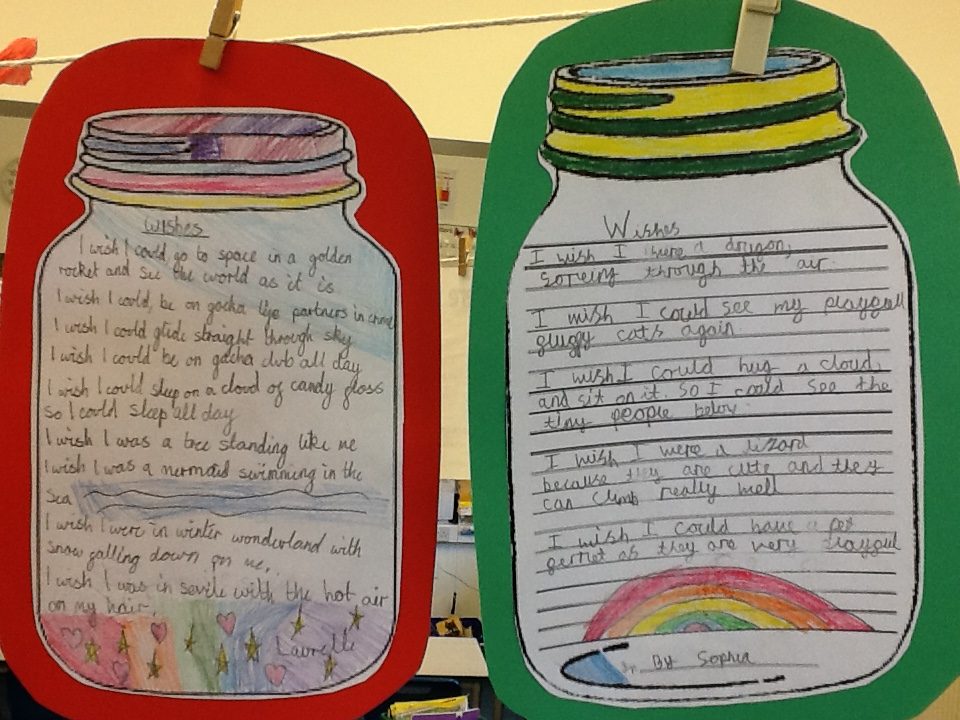 Wishes
I wish I could go to space in a golden
rocket and see the world as it is
I wish I could, be on gacha life partners in crime
I wish I could glide straight through sky
I wish I could be on gacha club all day
I wish I could sleep on a cloud of candy floss
so I could sleep all day
I wish I was a tree standing like me
I wish I was a mermaid swimming in the
sea
I wish I were in winter wonderland with
snow falling down on me.
I wish I was in sevile with the hot air
on my hair.
Laurelle
Wishes
I wish I were a dragon,
soreing through the air.
I wish I could see my playfull
fluffy cats again
I wish I could hug a cloud,
and sit on it. So I could see the
tiny people below.
I wish I were a lizard
because they are cute and they
can climb really well
I wish I could have a pet
ferret as they are very playful
By Sophia